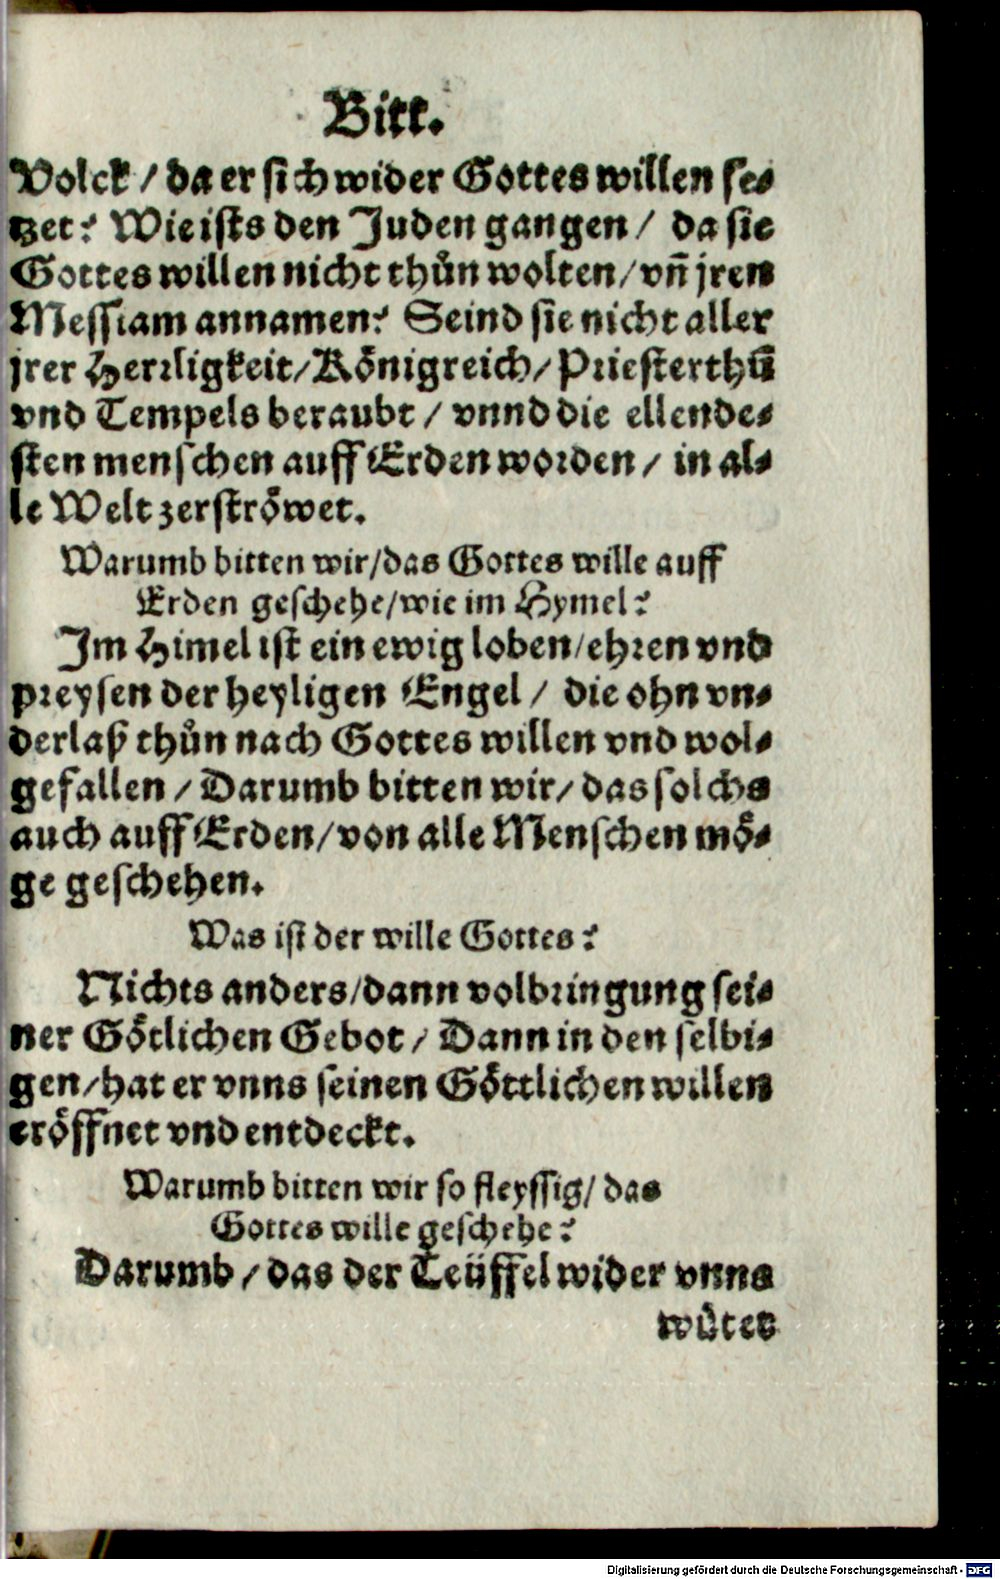 Bitt.
Volck / da er sich wider Gottes willen se⸗
tzet? Wie ists den Juden gangen / da sie
Gottes willen nicht thůn wolten / vñ jren
Messiam annamen? Seind sie nicht aller
jrer Herrligkeit / Königreich / Priesterthū
vnd Tempels beraubt / vnnd die ellende⸗
sten menschen auff Erden worden / in al⸗
le Welt zerströwet.
Warumb bitten wir / das Gottes wille auff
Erden geschehe / wie im Hymel?
Im Himel ist ein ewig loben / ehren vnd
preysen der heyligen Engel / die ohn vn⸗
derlaß thůn nach Gottes willen vnd wol⸗
gefallen / Darumb bitten wir / das solchs
auch auff Erden / von alle Menschen mö⸗
ge geschehen.
Was ist der wille Gottes?
Nichts anders / dann volbringung sei⸗
ner Götlichen Gebot / Dann in den selbi⸗
gen / hat er vnns seinen Göttlichen willen
eröffnet vnd entdeckt.
Warumb bitten wir so fleyssig / das
Gottes wille geschehe?
Darumb / das der Teüffel wider vnns
wütet
Digitalisierung gefördert durch die Deutsche Forschungsgemeinschaft - DFG